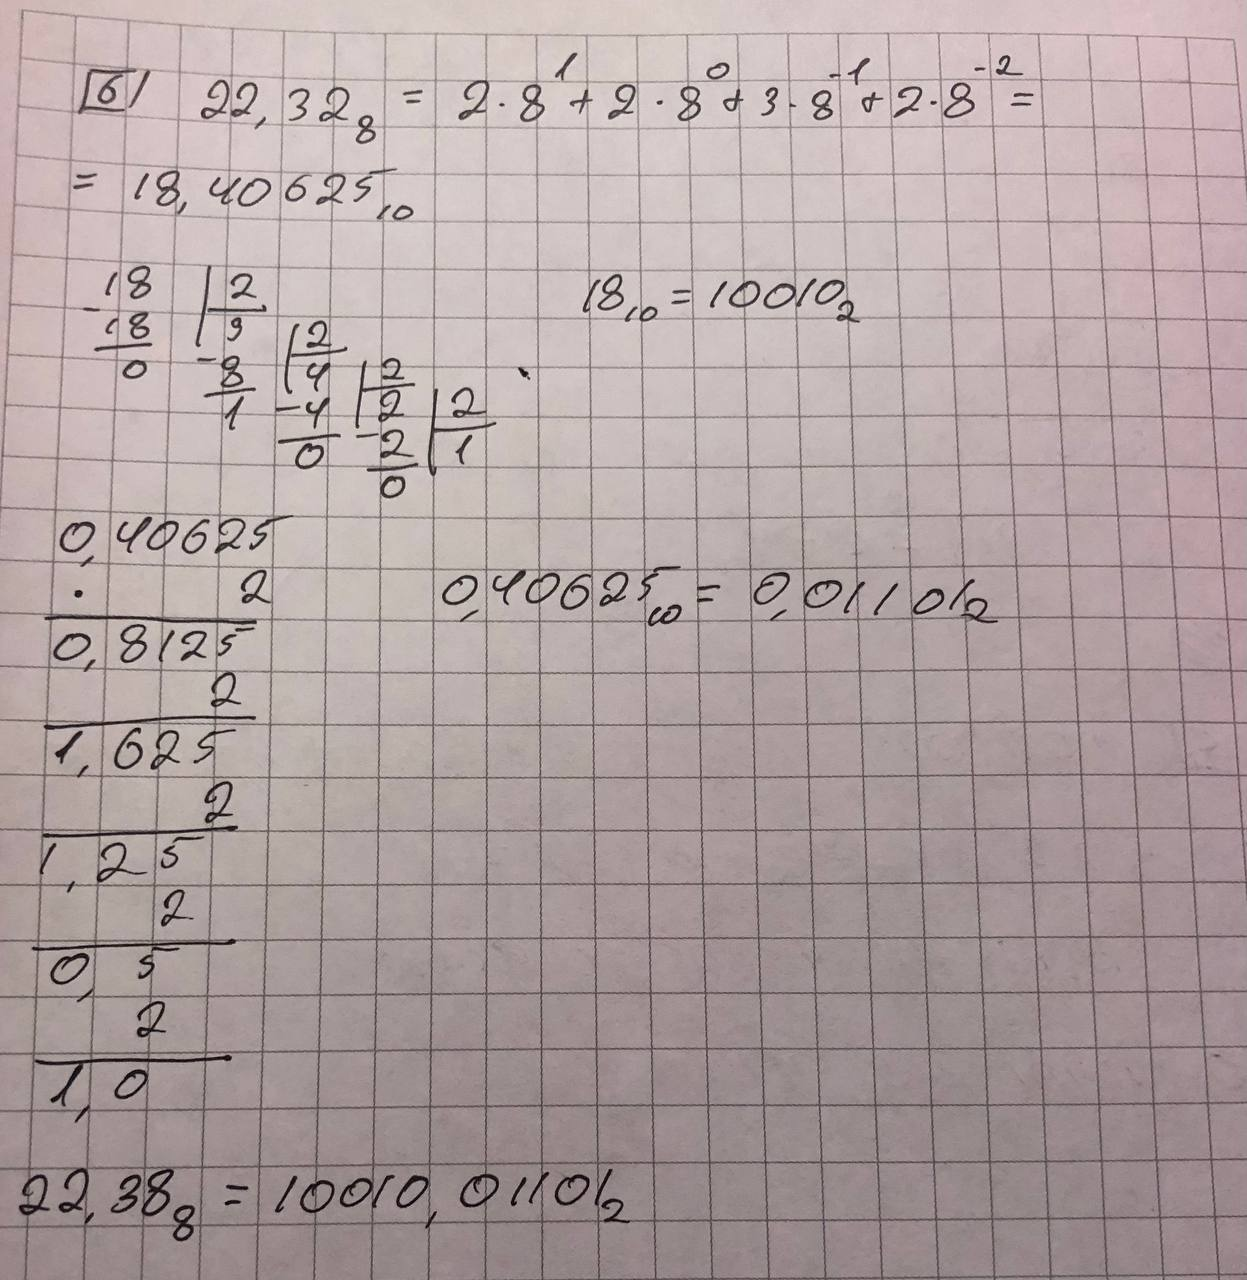 6) 22,32₈ = 2·8¹ + 2·8⁰ + 3·8⁻¹ + 2·8⁻² =
= 18,40625₁₀
18 | 2
- 18 | 9 | 2
0 - 8 | 4 | 2
1 - 4 | 2 | 2
0 - 2 | 1
0
18₁₀ = 10010₂
0,40625
· 2
0,8125
2
1,625
2
1,25
2
0,5
2
1,0
0,40625₁₀ = 0,01101₂
22,38₈ = 10010,01101₂